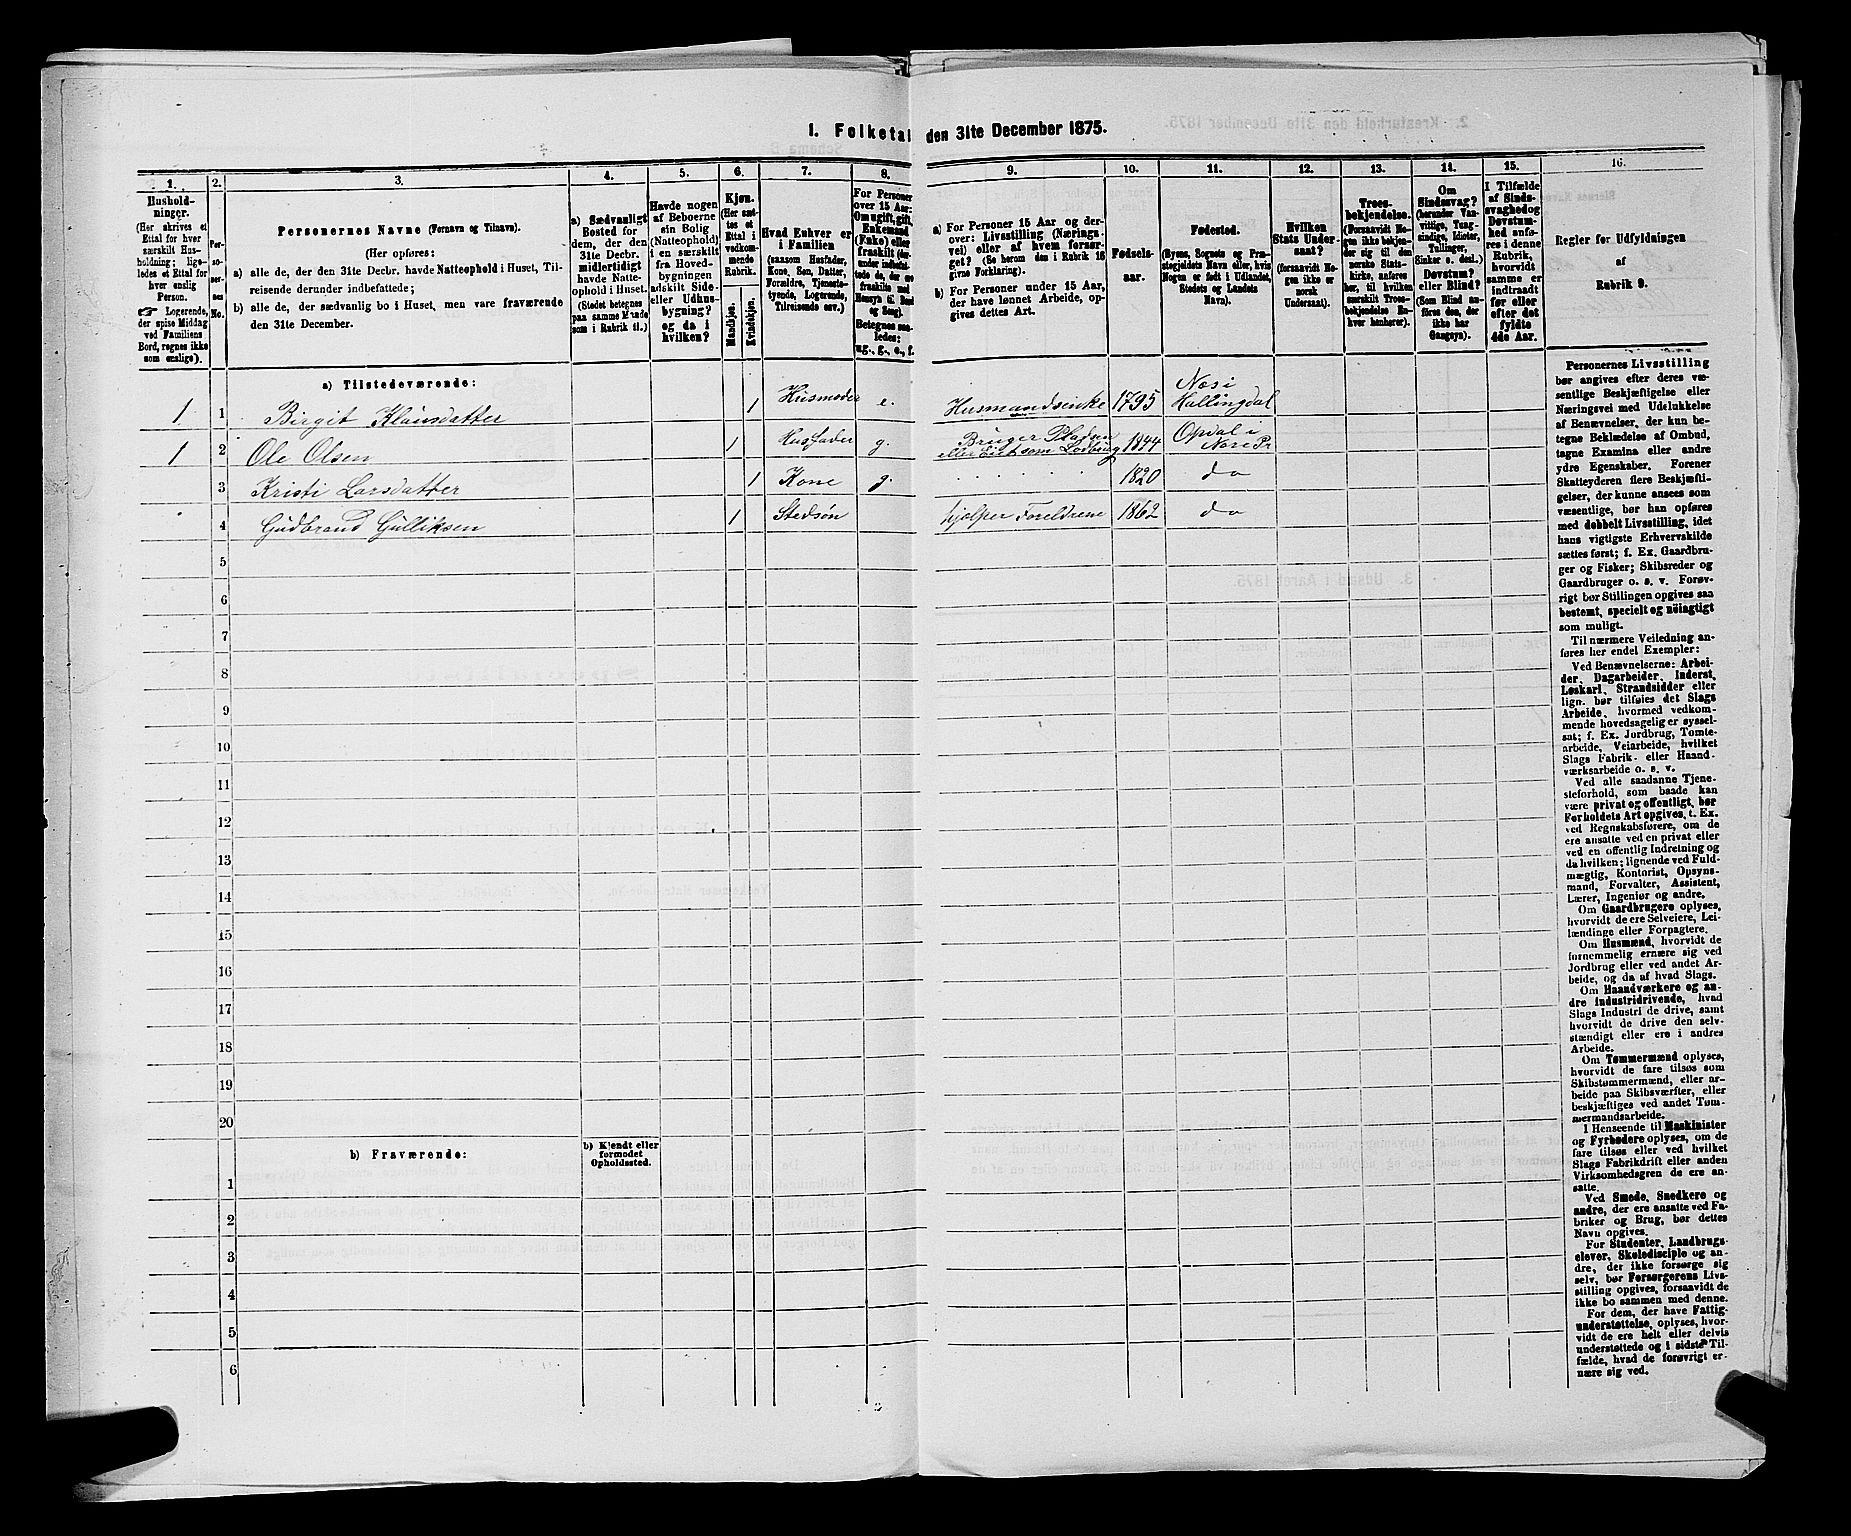 1. Folketal den 31te December 1875.
1.
2.
3.
4.
5.
6.
7.
8.
9.
10.
11.
12.
13.
14.
15.
16.
Hushold-
ninger.
(Her skrives et
Ettal for hver
særskilt Hus-
holdning; lige-
ledes et Ettal for
hver enslig
Person.
☞ Logerende,
der spise Middag
ved Familiens
Bord, regnes ikke
som enslige).
Per-
so-
ner-
nes
No.
Personernes Navne (Fornavn og Tilnavn).
(Her opføres:
a) alle de, der den 31te Decbr. havde Natteophold i Huset, Til-
reisende derunder indbefattede;
b) alle de, der sædvanlig bo i Huset, men vare fraværende
den 31te December.
a) Sædvanligt
Bosted for
dem, der den
31te Decbr.
midlertidigt
havde Natte-
ophold i Huset.
(Stedet betegnes
paa samme Maade
som i Rubrik 11.)
Havde nogen
af Beboerne
sin Bolig
(Natteophold)
i en særskilt
fra Hoved-
bygningen
adskilt Side-
eller Udhus-
bygning?
og da i
hvilken?
Kjøn.
(Her sæt-
tes et
Ettal i
vedkom-
mende
Rubrik.
Mandkjøn.
Kvindekjøn.
Hvad Enhver er
i Familien
(saasom Husfader,
Kone, Søn, Datter,
Forældre, Tjeneste-
tyende, Logerende,
Tilreisende osv.)
For Personer
over 15 Aar:
Om ugift, gift,
Enkemand
(Enke) eller
fraskilt (der-
under indbefat-
tede de, der ere
fraskilte med
Hensyn til Bord
og Seng).
Betegnes saa-
ledes:
ug., g., e., f.
a) For Personer 15 Aar og der-
over: Livsstilling (Nærings-
vei) eller af hvem forsør-
get? (Se herom den i Rubrik 16
givne Forklaring).
b) For Personer under 15 Aar,
der have lønnet Arbeide, op-
gives dettes Art.
Fødsels-
aar.
Fødested.
(Byens, Sognets og Præ-
stegjeldets Navn eller, hvis
Nogen er født i Udlandet,
Stedets og Landets
Navn).
Hvilken
Stats Under-
saat?
(forsaavidt No-
gen ikke er
norsk
Undersaat).
Troes-
bekjendelse.
(Forsaavidt No-
gen ikke bekjen-
der sig til den
norske Stats-
kirke, anføres
her, til hvilken
særskilt Troes-
bekjendelse En-
hver henhører).
Om
Sindssvag?
(herunder Van-
vittige, Tung-
sindige, Idioter,
Tullinger,
Sinker o. desl.)
Døvstum?
eller Blind?
(Som Blind an-
føres den, der
ikke har
Gangsyn).
I Tilfælde
af Sinds-
svaghed og
Døvstum-
hed anfø-
res i denne
Rubrik,
hvorvidt
samme er
indtraadt
før eller
efter det
fyldte
4de Aar.
Regler for Udfyldningen
af
Rubrik 9.
a) Tilstedeværende:
1 1 Birgit Klausdatter 1 Husmoder e. Husmandsenke 1795 Næs i Hallingdal
1 2 Ole Olsen 1 Husfader g. Bruger Pladsen 1844 Opdal i Nore Pr
3 Kristi Larsdatter 1 Kone g. 1820 do
4 Gudbrand Gulliksen 1 Stedsøn hjælper Foreldrene 1862 do
5
6
7
8
9
10
11
12
13
14
15
16
17
18
19
20
b) Fraværende:
b) Kjendt eller
formodet
Opholdssted.
1
2
3
4
5
6
Personernes Livsstilling
bør angives efter deres væ-
sentlige Beskjæftigelse eller
Næringsvei med Udelukkelse
af Benævnelser, der kun be-
tegne Beklædelse af Ombud,
tagne Examina eller andre
ydre Egenskaber. Forener
Skatteyderen flere Beskjæfti-
gelser, der kunne ansees som
væsentlige, bør han opføres
med dobbelt Livsstilling, idet
hans vigtigste Erhvervskilde
sættes først; f. Ex. Gaardbru-
ger og Fisker; Skibsreder og
Gaardbruger o. s. v. Forøv-
rigt bør Stillingen opgives saa
bestemt, specielt og nöiagtigt
som muligt.
Til nærmere Veiledning an-
føres her endel Exempler:
Ved Benævnelserne: Arbei-
der, Dagarbeider, Inderst,
Løskarl, Strandsidder eller
lign. bør tilføies det Slags
Arbeide, hvormed vedkom-
mende hovedsagelig er syssel-
sat; f. Ex. Jordbrug, Tomte-
arbeide, Veiarbeide, hvilket
Slags Fabrik- eller Haand-
værksarbeide o. s. v.
Ved alle saadanne Tjene-
steforhold, som baade kan
være privat og offentligt, bør
Forholdets Art opgives, t. Ex.
ved Regnskabsførere, om de
ere ansatte ved en privat eller
ved en offentlig Indretning og
da hvilken; lignende ved Fuld-
mægtig, Kontorist, Opsyns-
mand, Forvalter, Assistent,
Lærer, Ingeniør og andre.
Om Gaardbrugere oplyses,
hvorvidt de ere Selveiere, Lei-
lændinge eller Forpagtere.
Om Husmænd, hvorvidt de
fornemmelig ernære sig ved
Jordbrug eller ved andet Ar-
beide, og da af hvad Slags.
Om Haandværkere og an-
dre Industridrivende, hvad
Slags Industri de drive, samt
hvorvidt de drive den selv-
stændigt eller ere i andres
Arbeide.
Om Tømmermænd oplyses,
hvorvidt de fare tilsøs som
Skibstømmermænd, eller ar-
beide paa Skibsværfter, eller
beskjæftiges ved andet Tøm-
mermandsarbeide.
I Henseende til Maskinister
og Fyrbødere oplyses, om de
fare tilsøs eller ved hvilket
Slags Fabrikdrift eller anden
Virksomhedsgren de ere an-
satte.
Ved Smede, Snedkere og
andre, der ere ansatte ved Fa-
briker og Brug, bør dettes
Navn opgives.
For Studenter, Landbrugs-
elever, Skoledisciple og an-
dre, der ikke forsørge sig
selv, bør Forsørgerens Livs-
stilling opgives, forsaavidt de
ikke bo sammen med denne.
For dem, der have Fattig-
understøttelse, oplyses, hvor-
vidt de ere helt eller delvis
understøttede og i sidste Til-
fælde, hvad de forøvrigt er-
nære sig ved.